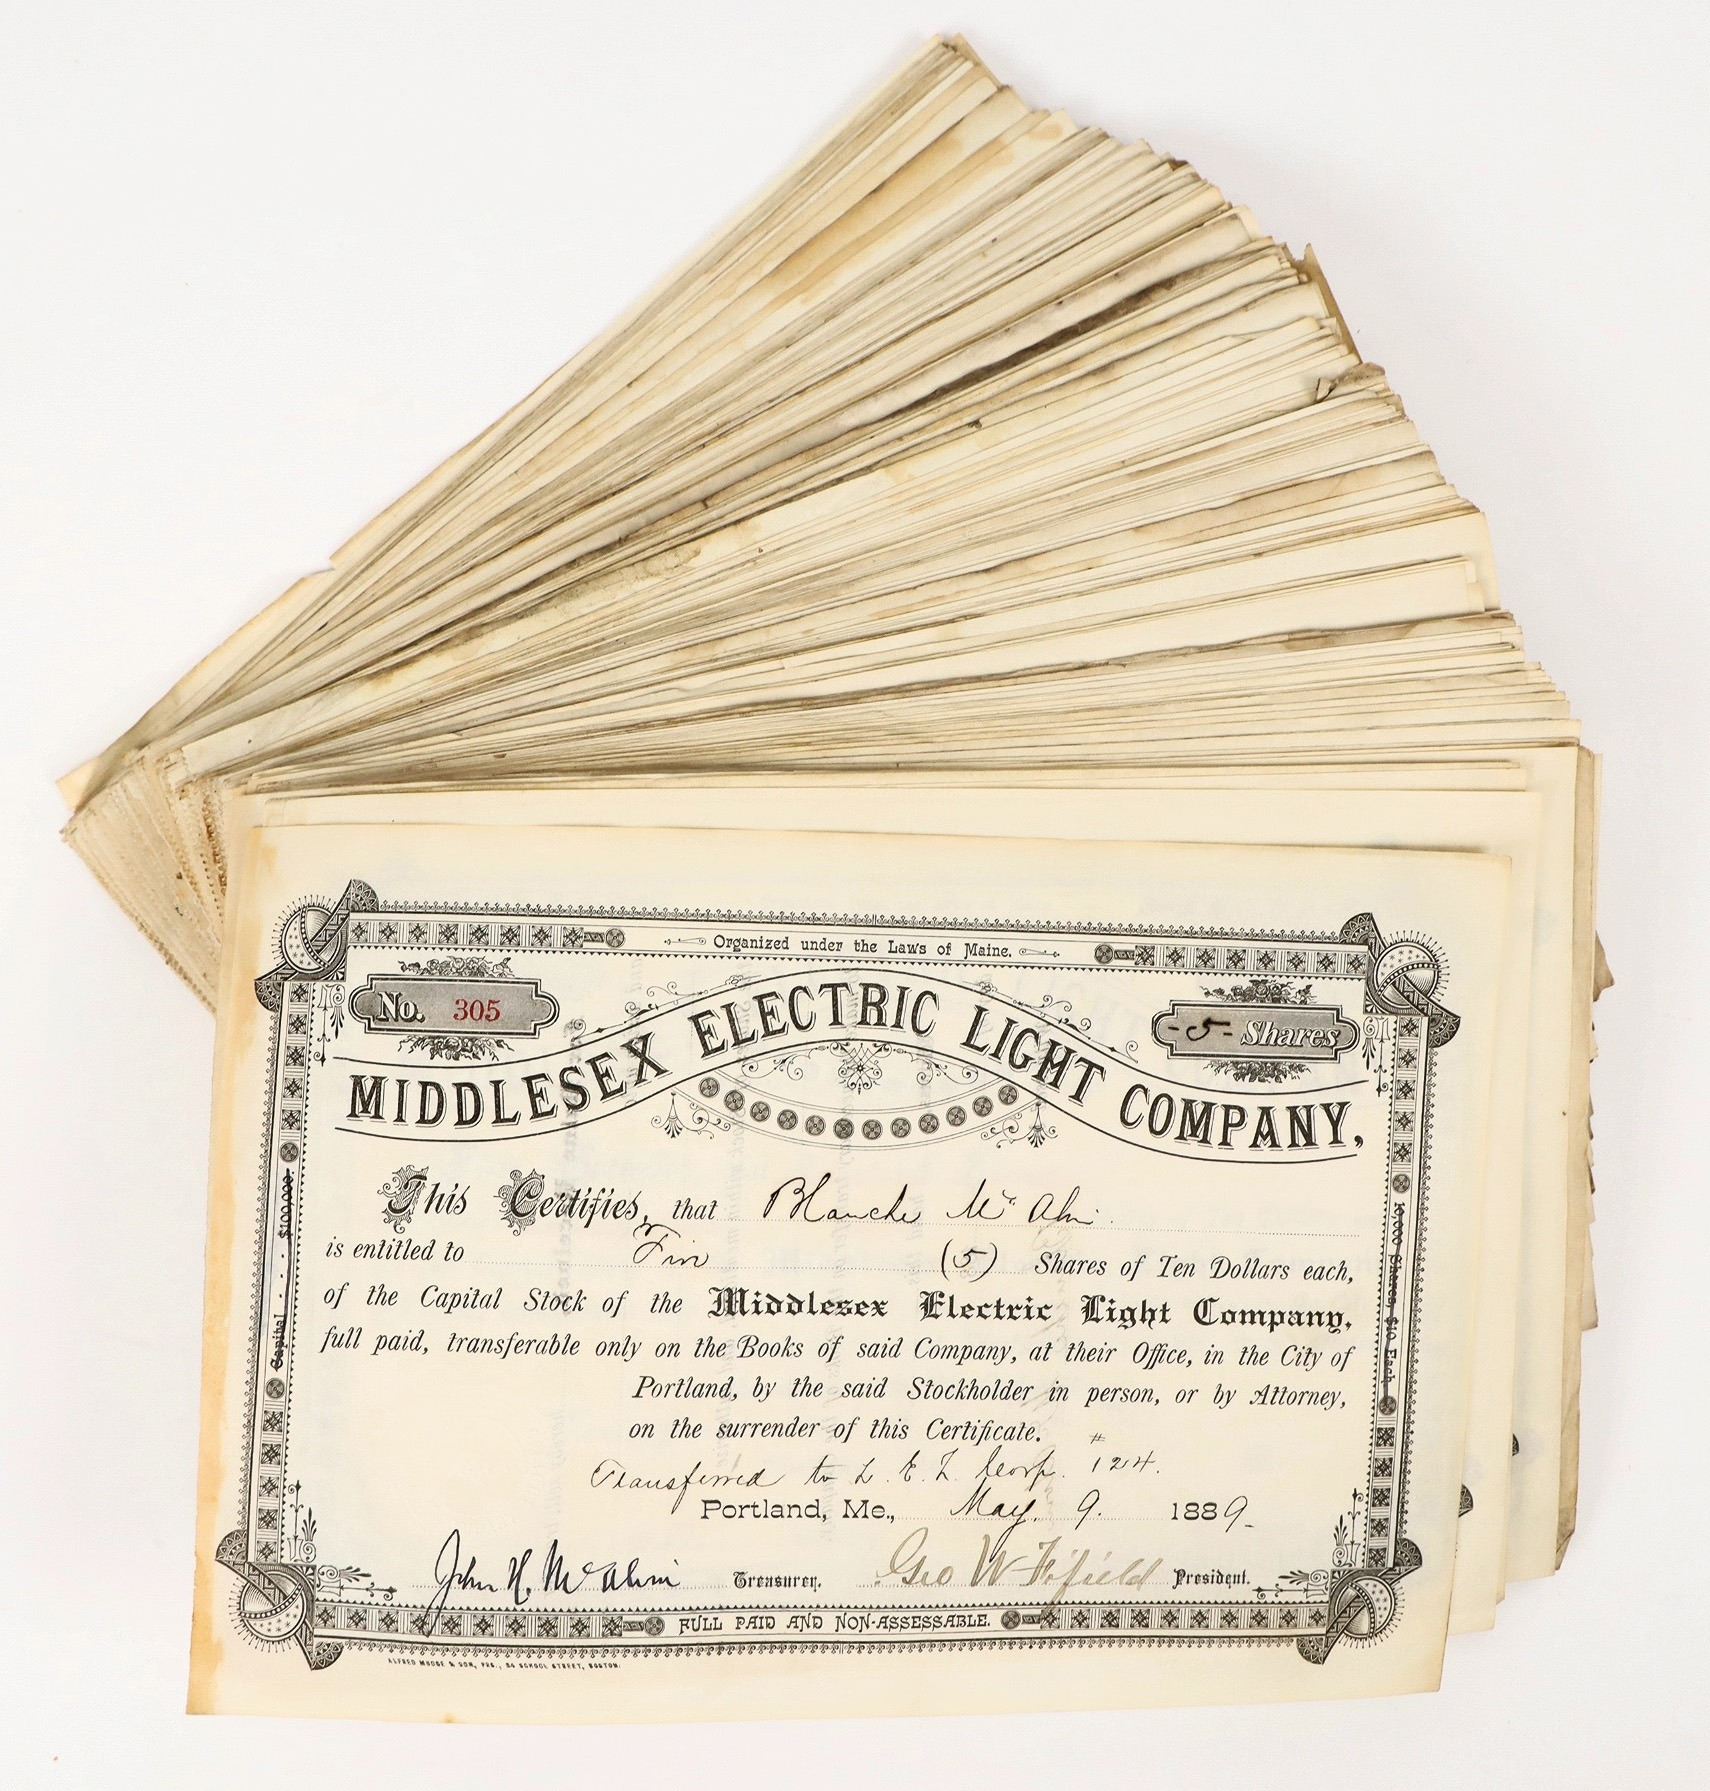 Organized under the Laws of Maine.
No. 305
-5- Shares
MIDDLESEX ELECTRIC LIGHT COMPANY,
This Certifies, that Blanche Mc Alvin.
is entitled to Five (5) Shares of Ten Dollars each,
of the Capital Stock of the Middlesex Electric Light Company,
full paid, transferable only on the Books of said Company, at their Office, in the City of
Portland, by the said Stockholder in person, or by Attorney,
on the surrender of this Certificate.
Transferred to L. E. L. Corp. #124.
Portland, Me., May 9. 1889.
John H. McAlvin Treasurer.
Geo W Fifield President.
Capital - - $100,000.
10,000 Shares, $10 Each
FULL PAID AND NON-ASSESSABLE.
ALFRED MUDGE & SON, PRS., 24 SCHOOL STREET, BOSTON.